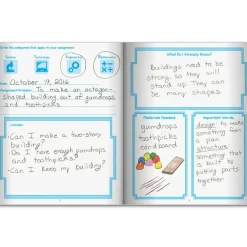 Circle the categories that apply to your assignment
Technology
Engineering
Mathematics
October 19, 2016
To make an octagon-
shaped building out of gumdrops
and toothpicks
Can I make a two-story
building?
Do I have enough gumdrops
and toothpicks?
Can I keep my building?
What Do I Already Know?
Buildings need to be
strong, so they will
stand up. They can
be many shapes.
Materials Needed
gumdrops
toothpicks
cardboard
Important Words
design: to make
something from
a plan
structure:
something that
is built by
putting parts
together